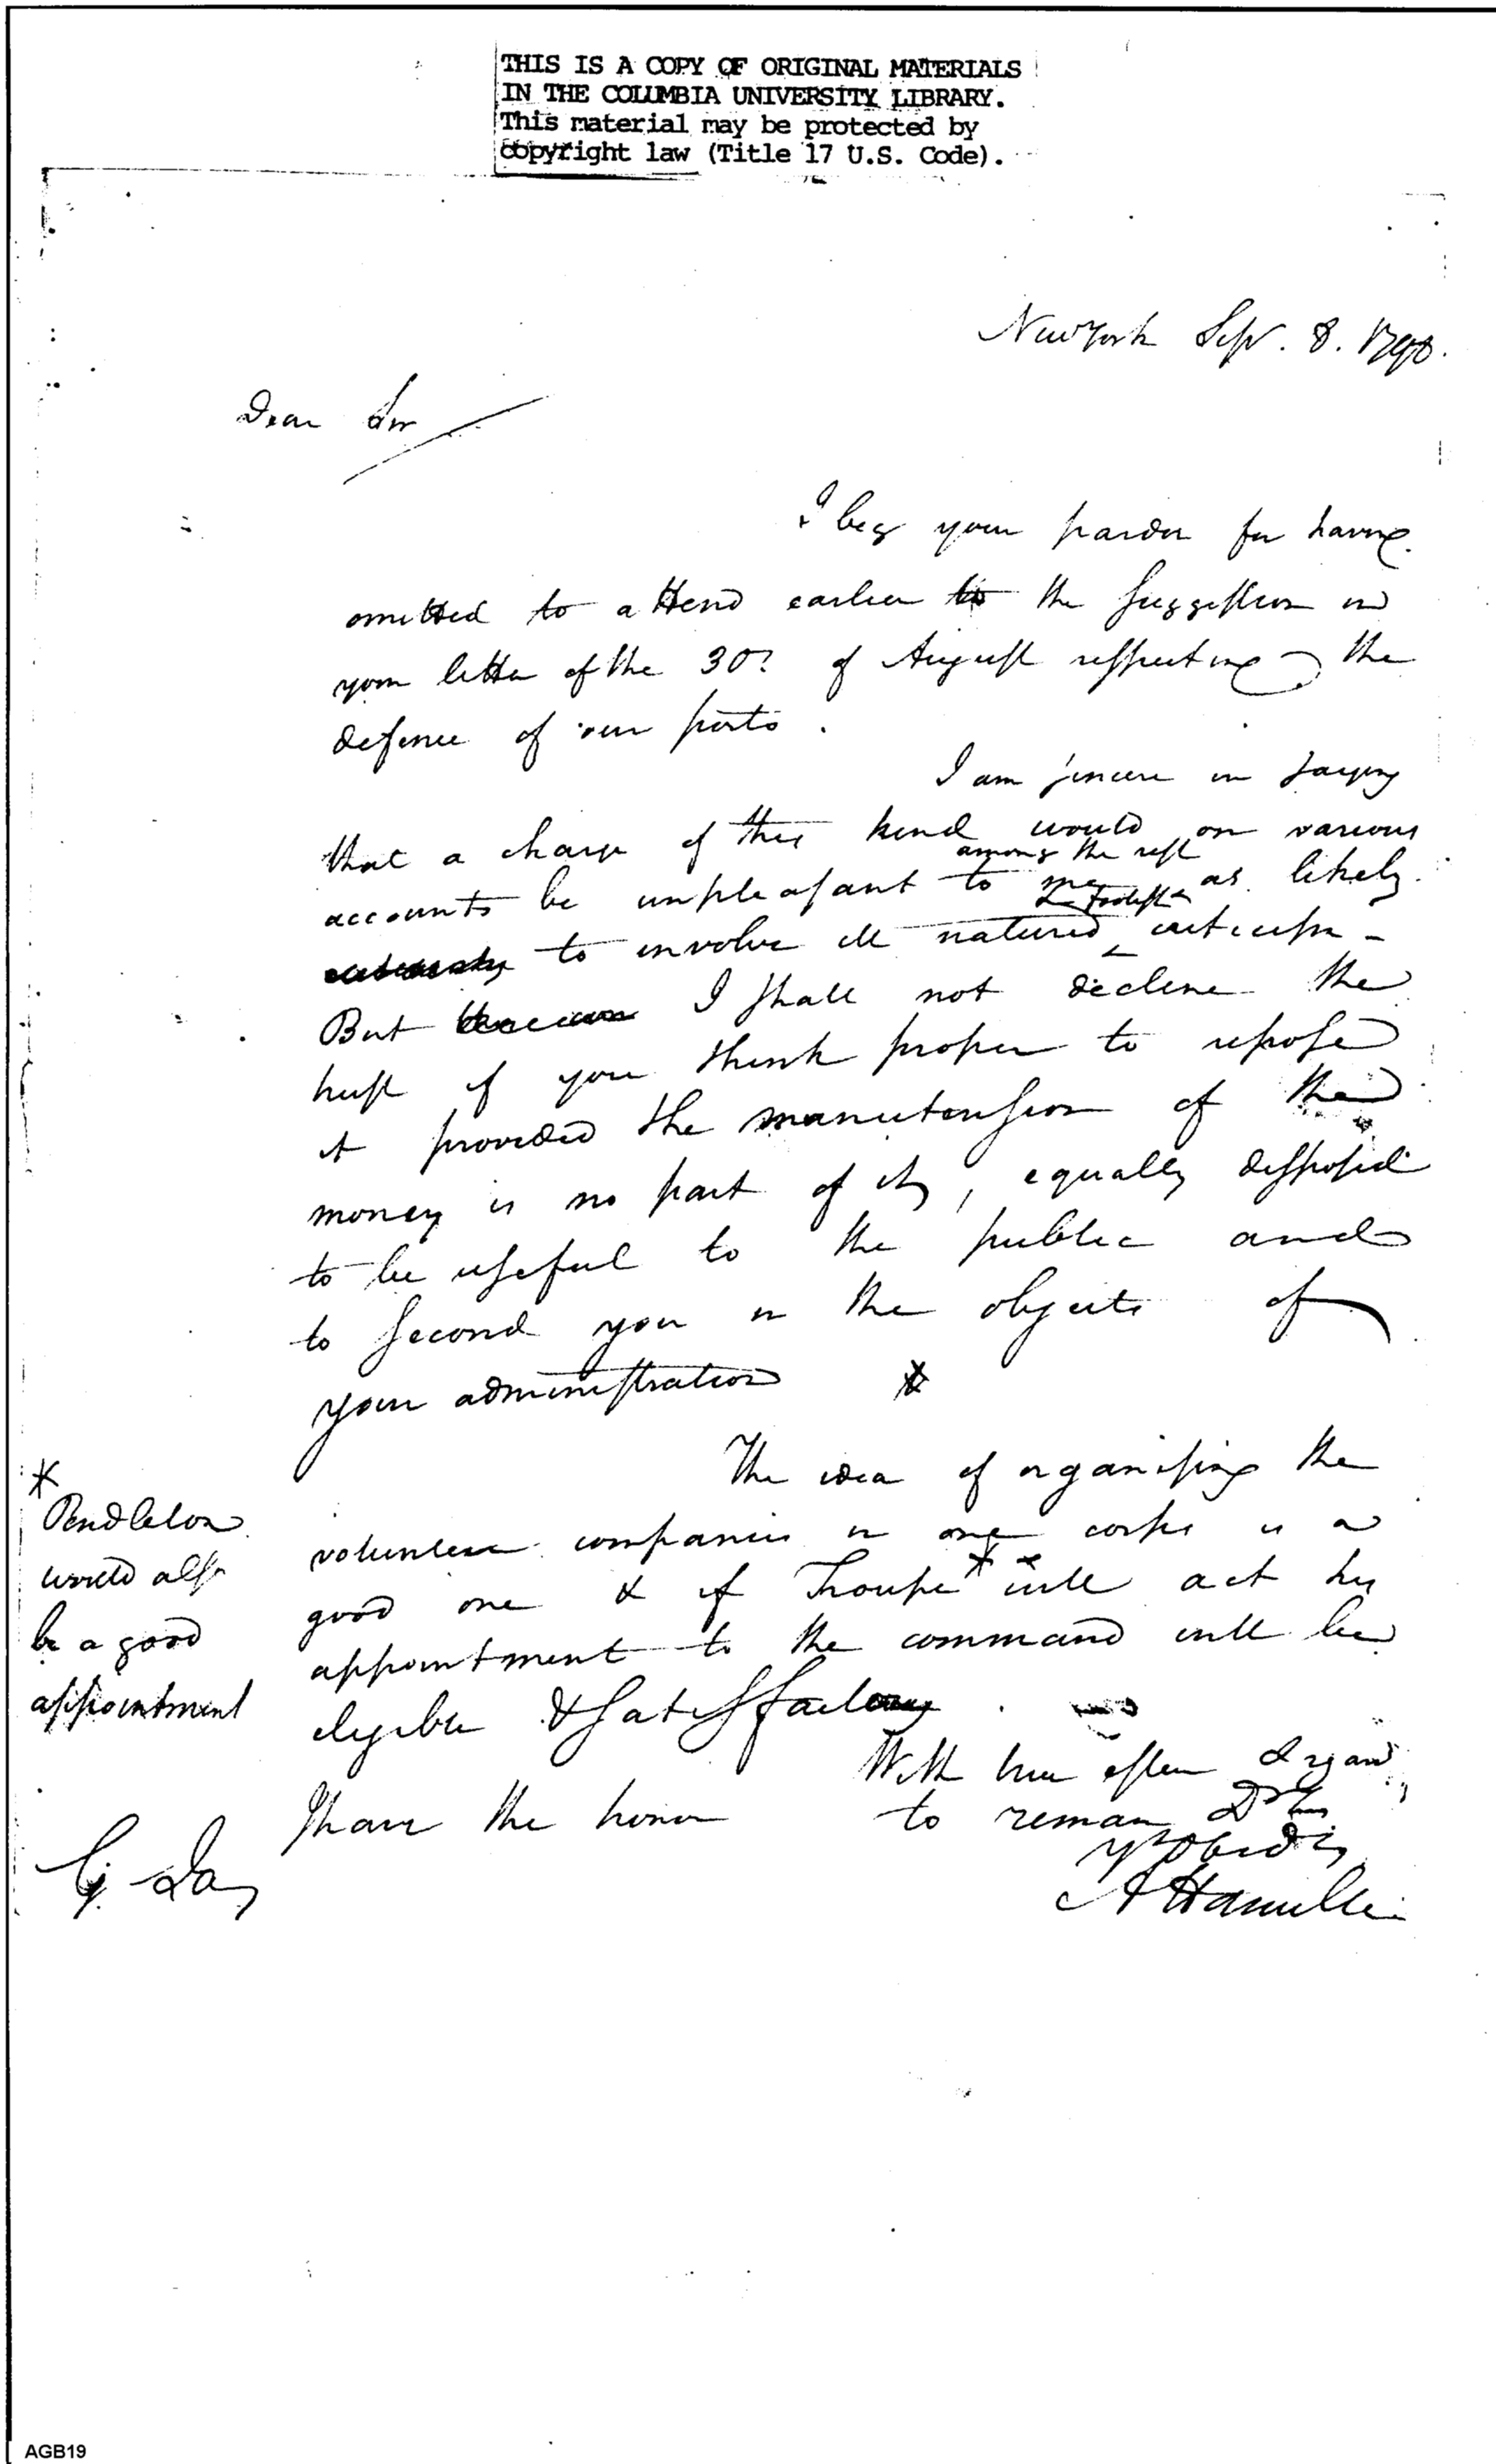 THIS IS A COPY OF ORIGINAL MATERIALS
IN THE COLUMBIA UNIVERSITY LIBRARY.
This material may be protected by
copyright law (Title 17 U.S. Code).
New York Sepr. 8. 1798.
Dear Sir
I beg your pardon for having
omitted to attend earlier to the suggestion in
your letter of the 30th of August respecting the
defence of our ports.
I am sincere in saying
that a charge of this kind would on various
among the rest
accounts be unpleasant to me as likely
& foolish
to involve ill natured criticism -
But I shall not decline the
trust if you think proper to repose
it provided the manutension of the
money is no part of it, equally disposed
to be useful to the public and
to second you in the objects of
your administration *
The idea of organising the
volunteer companies in one corps is a
good one & if Troupe * will act his
appointment to the command will be
eligible & satisfactory.
*
Pendleton
would also
be a good
appointment
With true esteem & regard
I have the honor to remain Dr Sir
Yr Obed s
A Hamilton
G. Jay
AGB19